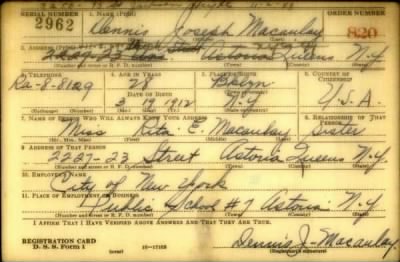 SERIAL NUMBER 1. NAME (Print) ORDER NUMBER
2962 Dennis Joseph Macaulay 820
(First) (Middle) (Last)
2. ADDRESS (Print)
Astoria Queens N.Y.
(Number and street or R. F. D. number) (Town) (County) (State)
3. TELEPHONE 4. AGE IN YEARS 5. PLACE OF BIRTH 6. COUNTRY OF CITIZENSHIP
Ra-8-8129 28 Bklyn
DATE OF BIRTH
3 19 1912 N.Y. U.S.A.
(Exchange) (Number) (Mo.) (Day) (Yr.) (State or country)
7. NAME OF PERSON WHO WILL ALWAYS KNOW YOUR ADDRESS 8. RELATIONSHIP OF THAT PERSON
Miss Rita E. Macaulay Sister
(Mr., Mrs., Miss) (First) (Middle) (Last)
9. ADDRESS OF THAT PERSON
2227-23 Street Astoria Queens N.Y.
(Number and street or R. F. D. number) (Town) (County) (State)
10. EMPLOYER'S NAME
City of New York
11. PLACE OF EMPLOYMENT OR BUSINESS
Public School #7 Astoria N.Y.
(Number and street or R. F. D. number) (Town) (County) (State)
I AFFIRM THAT I HAVE VERIFIED ABOVE ANSWERS AND THAT THEY ARE TRUE.
REGISTRATION CARD
D. S. S. Form 1 (over) 16-17105 Dennis J. Macaulay
(Registrant's signature)